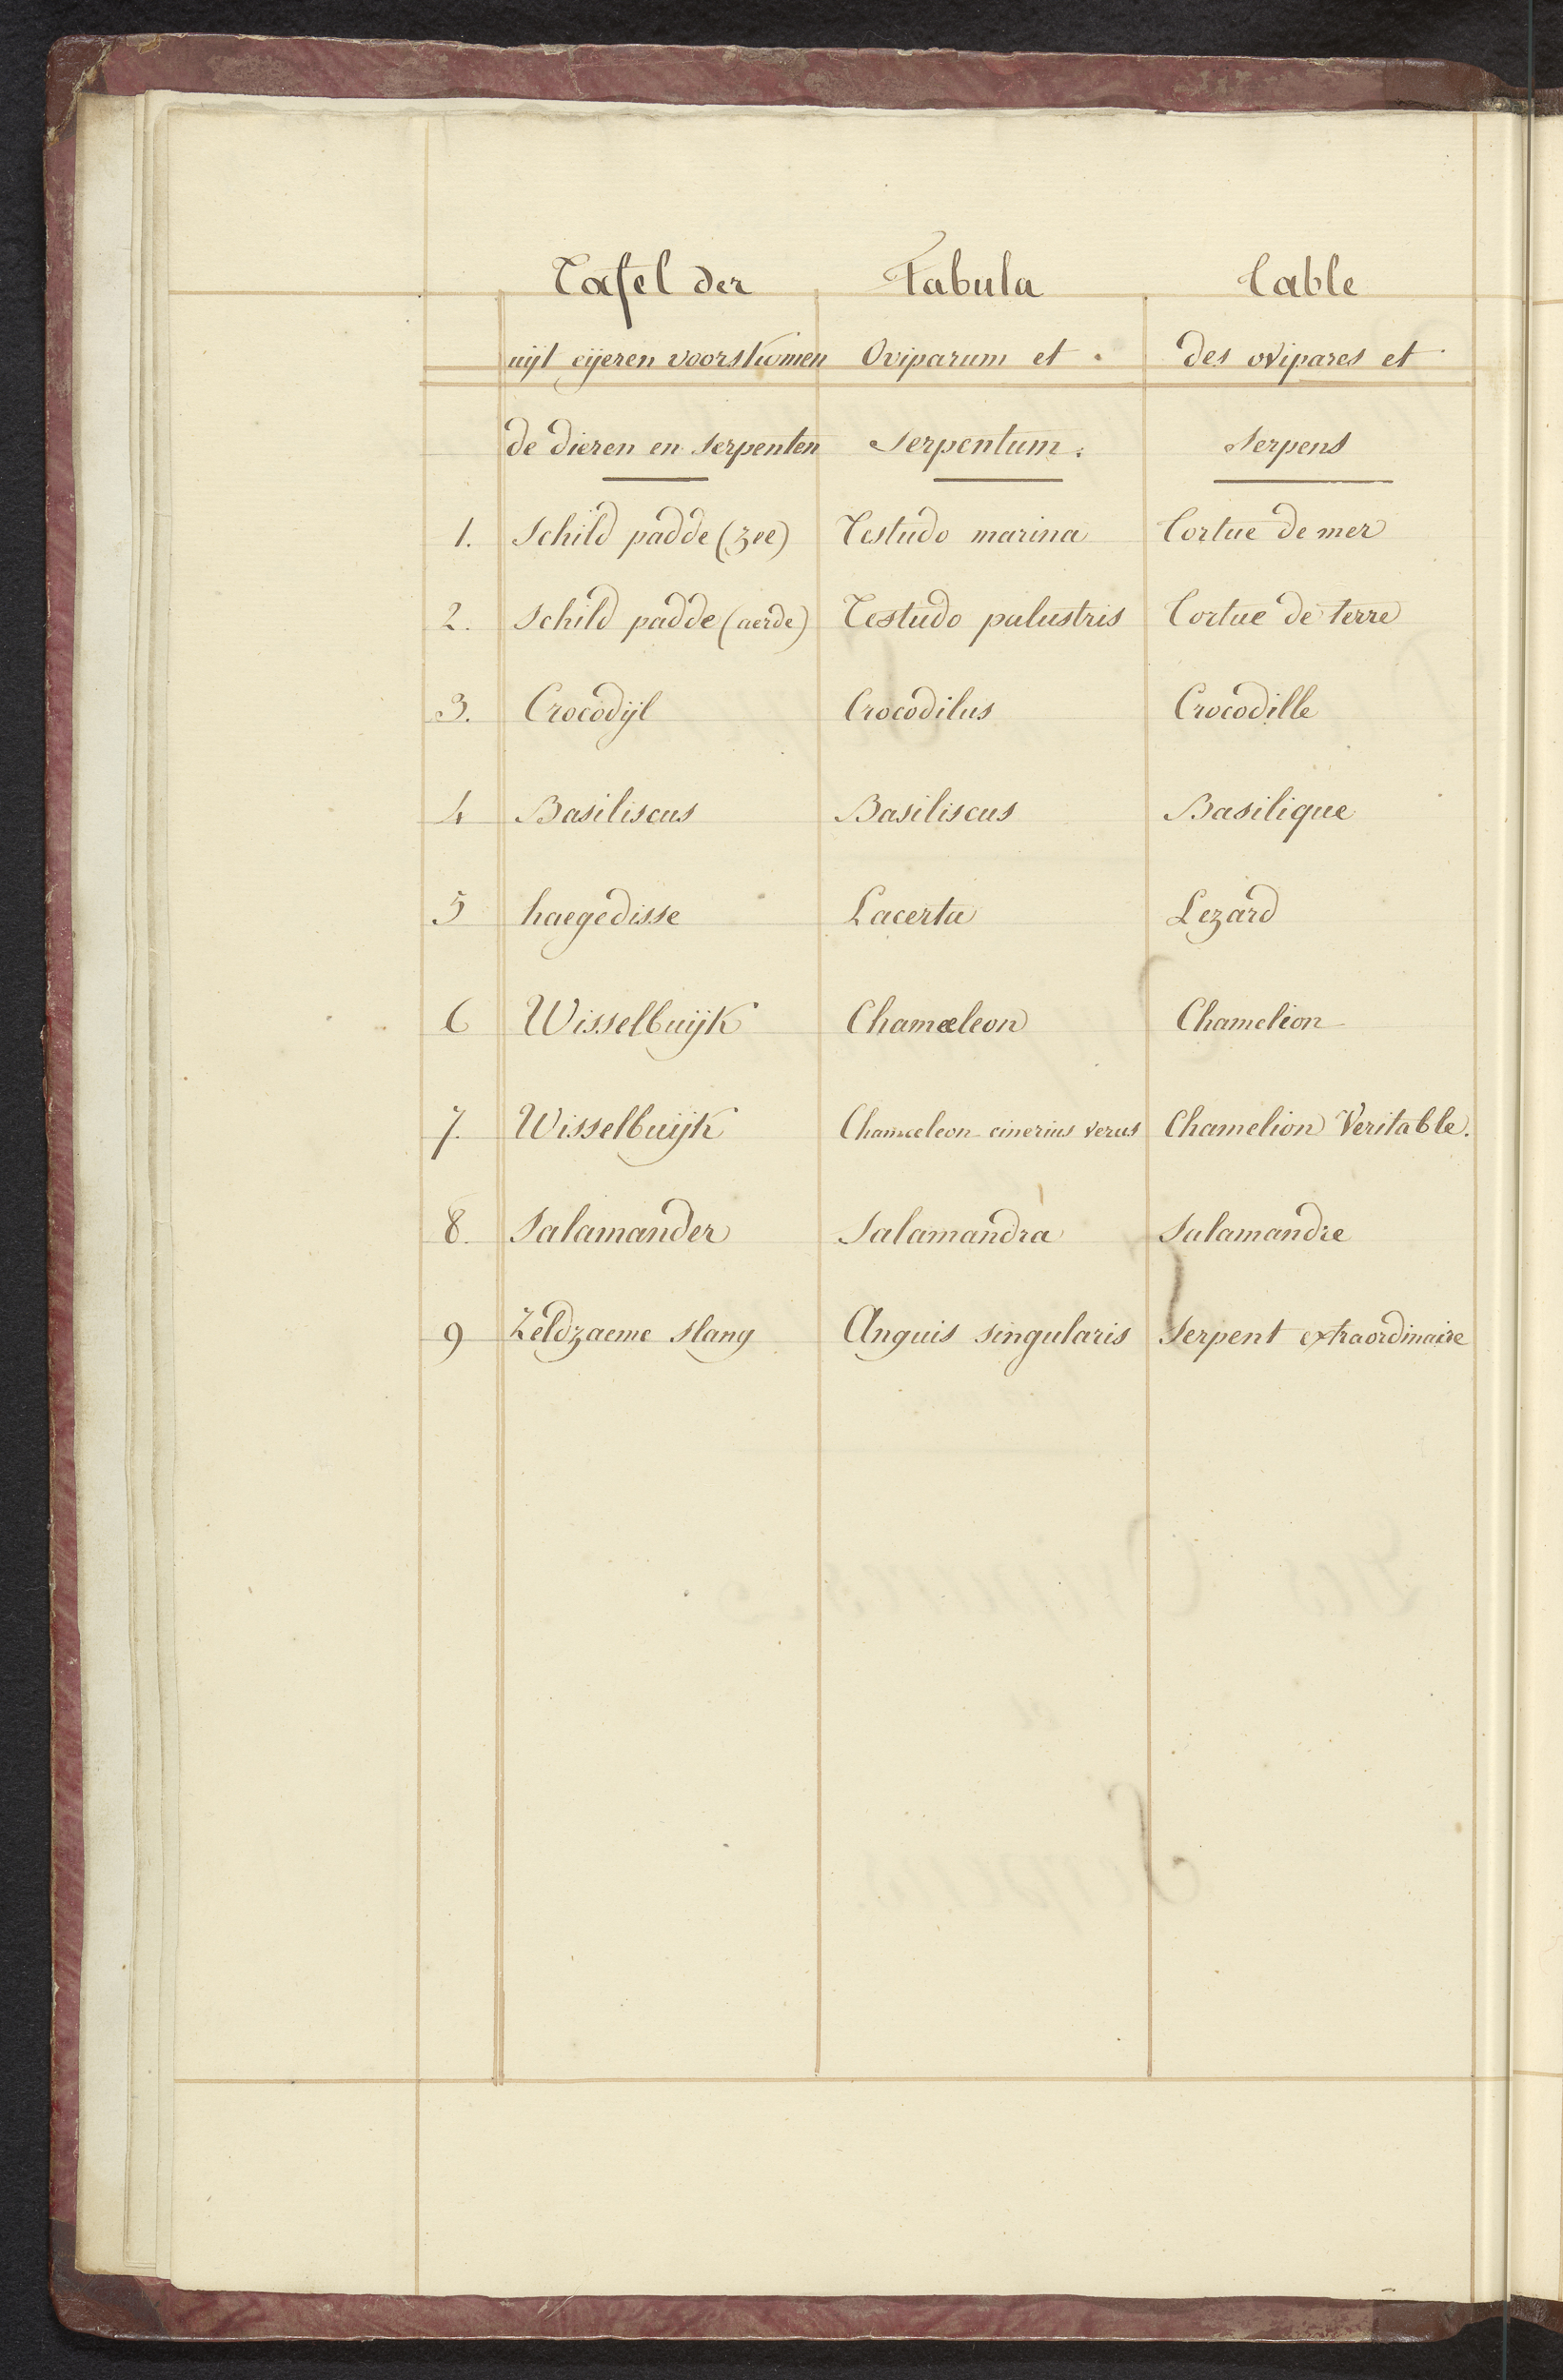 Tafel der Tabula Table
uijt eijeren voorstkomen Oviparum et des ovipares et
de dieren en Serpenten Serpentum. Serpens
1. Schild padde (zee) Testudo marina Tortue de mer
2. Schild padde (aerde) Testudo palustris Tortue de terre
3. Crocodijl Crocodilus Crocodille
4 Basiliscus Basiliscus Basilique
5 haegedisse Lacerta Lezard
6 Wisselbuijk Chamæleon Chamelion
7. Wisselbuijk Chamæleon cinerius verus Chamelion Veritable.
8. Salamander Salamandra Salamandre
9 Zeldzaeme slang Anguis singularis Serpent extraordinaire